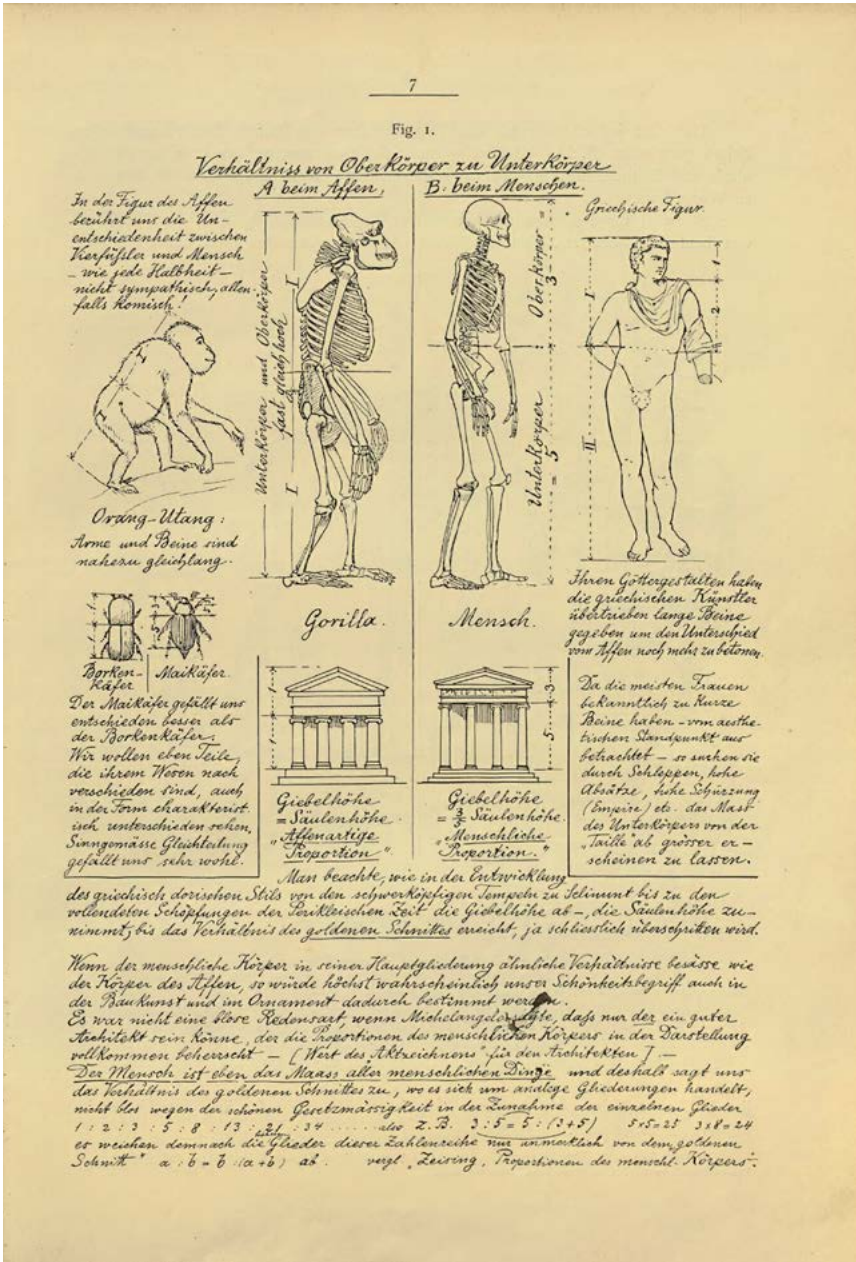 7
Fig. 1.
Verhältniss von Oberkörper zu Unterkörper
A beim Affen,
B: beim Menschen.
In der Figur des Affen
berührt uns die Un-
entschiedenheit zwischen
Vierfüssler und Mensch
– wie jede Halbheit –
nicht sympathisch, allen-
falls komisch!
Orang-Utang:
Arme und Beine sind
nahezu gleichlang.
Unterkörper und Oberkörper
fast gleich hoch
I
I
Gorilla.
Oberkörper =
3
Unterkörper
= 5
Mensch.
Griechische Figur.
I
II
1
2
Ihren Göttergestalten haben
die griechischen Künstler
übertrieben lange Beine
gegeben um den Unterschied
vom Affen noch mehr zu betonen.
Borken-
käfer
Maikäfer.
Der Maikäfer gefällt uns
entschieden besser als
der Borkenkäfer.
Wir wollen eben Teile,
die ihrem Wesen nach
verschieden sind, auch
in der Form charakterist
isch unterschieden sehen,
Sinngemässe Gleichteilung
gefällt uns sehr wohl.
1
1
Giebelhöhe
= Säulenhöhe.
„Affenartige
Proportion“.
3
5
Giebelhöhe
= 3/5 Säulenhöhe.
„Menschliche
Proportion.“
Da die meisten Frauen
bekanntlich zu kurze
Beine haben – vom aesthe-
tischen Standpunkt aus
betrachtet – so suchen sie
durch Schleppen, hohe
Absätze, hohe Schürzung
(Empire) etc. das Mass
des Unterkörpers von der
Taille ab grösser er-
scheinen zu lassen.
Man beachte, wie in der Entwicklung
des griechisch dorischen Stils von den schwerköpfigen Tempeln zu Selinunt bis zu den
vollendeten Schöpfungen der Perikleischen Zeit die Giebelhöhe ab –, die Säulenhöhe zu-
nimmt, bis das Verhältnis des goldenen Schnittes erreicht, ja schliesslich überschritten wird.
Wenn der menschliche Körper in seiner Hauptgliederung ähnliche Verhältnisse besässe wie
der Körper des Affen, so würde höchst wahrscheinlich unser Schönheitsbegriff auch in
der Baukunst und im Ornament dadurch bestimmt werden.
Es war nicht eine blose Redensart, wenn Michelangelo sagte, dass nur der ein guter
Architekt sein könne, der die Proportionen des menschlichen Körpers in der Darstellung
vollkommen beherrscht – [Wert des „Aktzeichnens“ für den Architekten] –
Der Mensch ist eben das Maass aller menschlichen Dinge und deshalb sagt uns
das Verhältnis des goldenen Schnittes zu, wo es sich um analoge Gliederungen handelt,
nicht blos wegen der schönen Gesetzmässigkeit in der Zunahme der einzelnen Glieder
1 : 2 : 3 : 5 : 8 : 13 : 21 : 34 ..... also z.B. 3 : 5 = 5 : (3+5) 5×5=25 3×8=24
es weichen demnach die Glieder dieser Zahlenreihe nur unmerklich von dem „goldenen
Schnitt“ a : b = b : (a+b) ab. vergl. „Zeising, Proportionen des menschl. Körpers“.